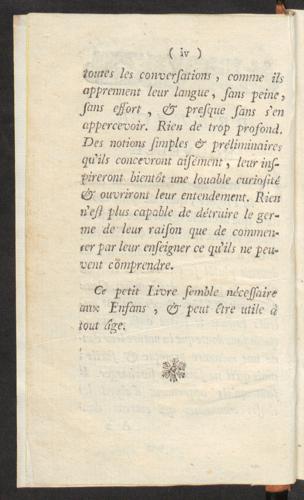 ( iv )
toutes les conversations , comme ils
apprennent leur langue , sans peine,
sans effort , & presque sans s'en
appercevoir. Rien de trop profond.
Des notions simples & préliminaires
qu'ils concevront aisément , leur ins-
pireront bientôt une louable curiosité
& ouvriront leur entendement. Rien
n'est plus capable de détruire le ger-
me de leur raison que de commen-
cer par leur enseigner ce qu'ils ne peu-
vent comprendre.
Ce petit Livre semble nécessaire
aux Enfans , & peut être utile à
tout âge.